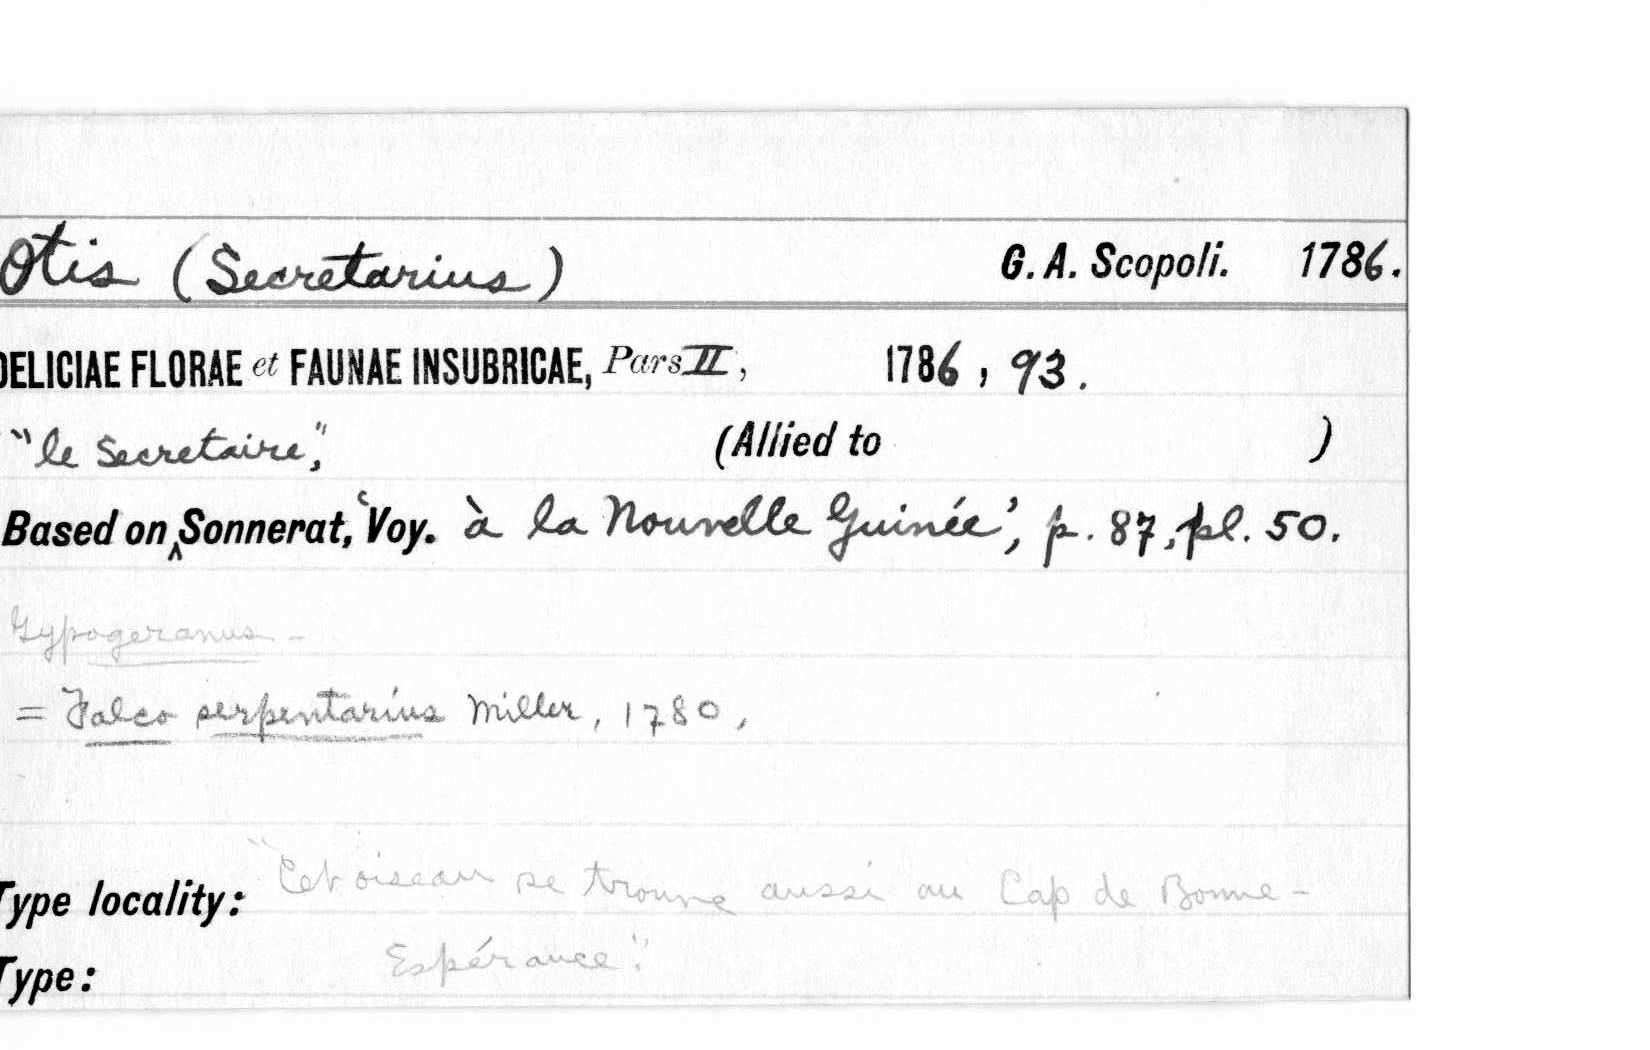 Otis (Secretarius) G. A. Scopoli. 1786.
DELICIAE FLORAE et FAUNAE INSUBRICAE, Pars II, 1786, 93.
"le Secretaire", (Allied to )
Based on ‸ Sonnerat, 'Voy. à la Nouvelle Guinée', p. 87, pl. 50.
Gypogeranus -
= Falco serpentarius Miller, 1780,
Type locality: "Cet oiseau se trouve aussi au Cap de Bonne-
Espérance".
Type: